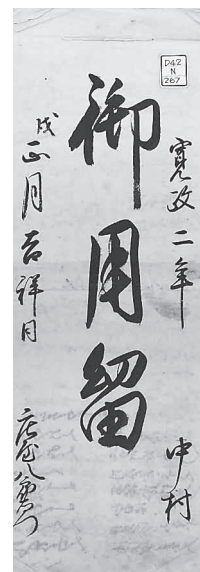 D42
N
267
寛政二年
中村
御用留
戌正月吉祥日
庄屋八郎右衛門